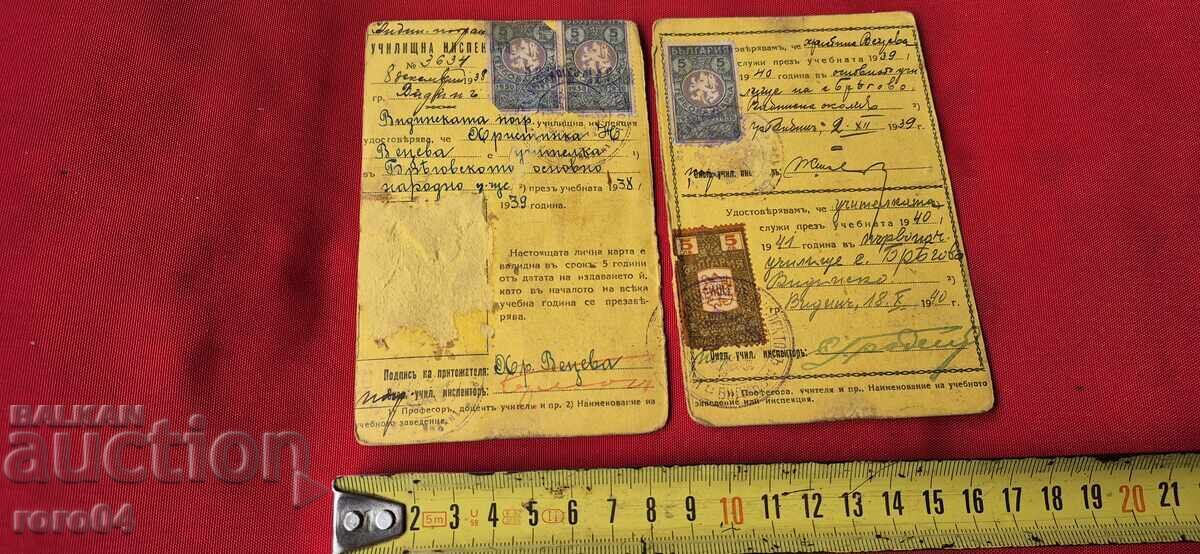 УЧИЛИЩНА ИНСПЕК
№ 3634
8 декемврий 1938
гр. Видинъ
Видинската погр. училищна инспекция
удостовѣрява, че Христинка Н
Вецева е учителка 1)
въ Брѣговското основно
народно у-ще 2) презъ учебната 1938/
1939 година.
Настоящата лична карта е
валидна въ срокъ 5 години
отъ датата на издаването ѝ,
като въ началото на всѣка
учебна година се презавѣ-
рява.
Подпись на притежателя: Хр. Вецева
учил. инспекторъ:
1) Професоръ, доцентъ учители и пр. 2) Наименование на
учебното заведение.
5 5 5 5
БЪЛГАРИЯ
5 5
Удостовѣрявамъ, че Вецева
служи презъ учебната 1939/
1940 година въ основното учи
лище на с. Брѣгово
Видинска околия 2)
гр. Видинъ, 2-XII 1939 г.
учил. инспекторъ:
Удостовѣрявамъ, че учителката
служи презъ учебната 1940/
1941 година въ първонач.
училище с. Брѣгово
Видинско 2)
гр. Видинъ, 18.X 1940 г.
5 5
БЪЛГАРИЯ
учил. инспекторъ:
1) Професора, учителя и пр. Наименование на учебното
заведение или инспекция.
BALKAN
auction
roro04
2 5m 3 4 5 6 7 8 9 10 11 12 13 14 15 16 17 18 19 20 21